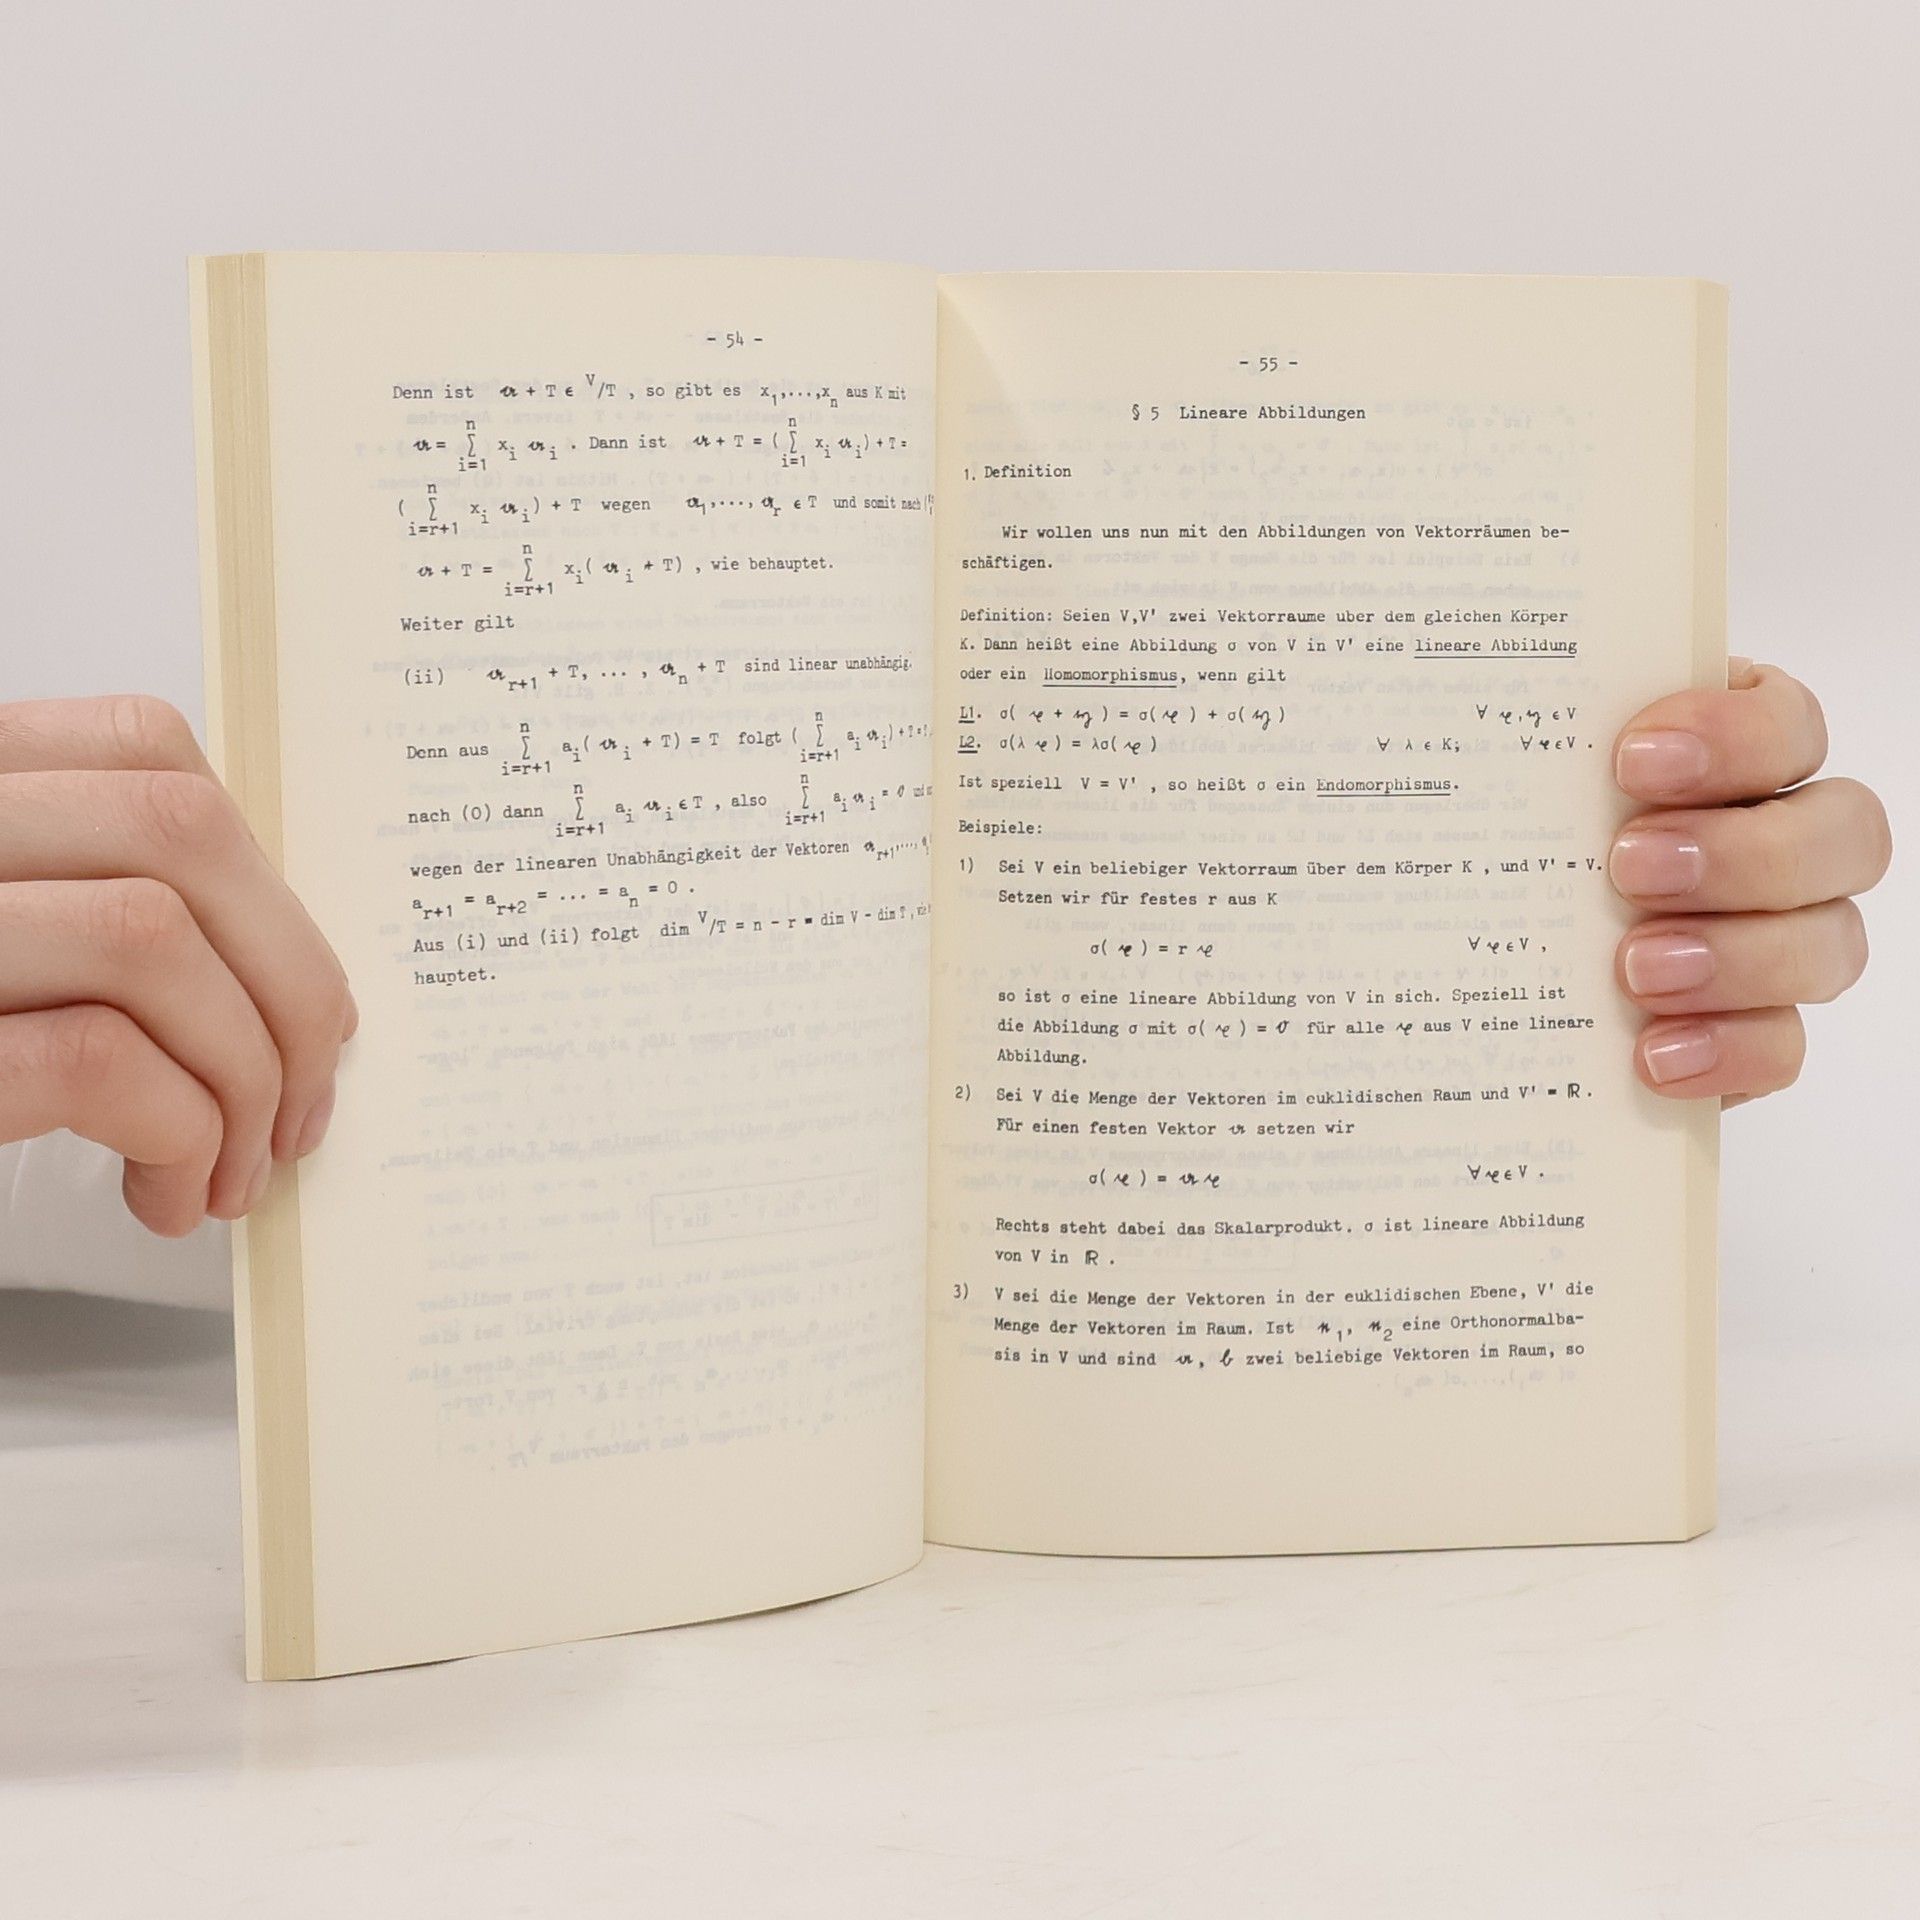 - 54 -
Denn ist 𝔞 + T ∈ V/T , so gibt es x₁,...,xₙ aus K mit
𝔞 = ∑ᵢ₌₁ⁿ xᵢ 𝔞ᵢ . Dann ist 𝔞 + T = ( ∑ᵢ₌₁ⁿ xᵢ 𝔞ᵢ) + T =
( ∑ᵢ₌ᵣ₊₁ⁿ xᵢ 𝔞ᵢ) + T wegen 𝔞₁,..., 𝔞ᵣ ∈ T und somit nach
𝔞 + T = ∑ᵢ₌ᵣ₊₁ⁿ xᵢ( 𝔞ᵢ + T) , wie behauptet.
Weiter gilt
(ii) 𝔞ᵣ₊₁ + T, ... , 𝔞ₙ + T sind linear unabhängig.
Denn aus ∑ᵢ₌ᵣ₊₁ⁿ aᵢ( 𝔞ᵢ + T) = T folgt ( ∑ᵢ₌ᵣ₊₁ⁿ aᵢ 𝔞ᵢ) + T =
nach (0) dann ∑ᵢ₌ᵣ₊₁ⁿ aᵢ 𝔞ᵢ ∈ T , also ∑ᵢ₌ᵣ₊₁ⁿ aᵢ 𝔞ᵢ = 𝔬
wegen der linearen Unabhängigkeit der Vektoren 𝔞ᵣ₊₁,...,
aᵣ₊₁ = aᵣ₊₂ = ... = aₙ = 0 .
Aus (i) und (ii) folgt dim V/T = n - r = dim V - dim T ,
hauptet.
- 55 -
§ 5 Lineare Abbildungen
1. Definition
Wir wollen uns nun mit den Abbildungen von Vektorräumen be-
schäftigen.
Definition: Seien V,V' zwei Vektorraume uber dem gleichen Körper
K. Dann heißt eine Abbildung σ von V in V' eine lineare Abbildung
oder ein Homomorphismus, wenn gilt
L1. σ( 𝔵 + 𝔶 ) = σ( 𝔵 ) + σ( 𝔶 ) ∀ 𝔵,𝔶 ∈ V
L2. σ(λ 𝔵 ) = λσ( 𝔵 ) ∀ λ ∈ K; ∀ 𝔵 ∈ V .
Ist speziell V = V' , so heißt σ ein Endomorphismus.
Beispiele:
1) Sei V ein beliebiger Vektorraum über dem Körper K , und V' = V.
Setzen wir für festes r aus K
σ( 𝔵 ) = r 𝔵 ∀ 𝔵 ∈ V ,
so ist σ eine lineare Abbildung von V in sich. Speziell ist
die Abbildung σ mit σ( 𝔵 ) = 𝔬 für alle 𝔵 aus V eine lineare
Abbildung.
2) Sei V die Menge der Vektoren im euklidischen Raum und V' = ℝ .
Für einen festen Vektor 𝔞 setzen wir
σ( 𝔵 ) = 𝔞 𝔵 ∀ 𝔵 ∈ V .
Rechts steht dabei das Skalarprodukt. σ ist lineare Abbildung
von V in ℝ .
3) V sei die Menge der Vektoren in der euklidischen Ebene, V' die
Menge der Vektoren im Raum. Ist 𝔫₁, 𝔫₂ eine Orthonormalba-
sis in V und sind 𝔞, 𝔟 zwei beliebige Vektoren im Raum, so